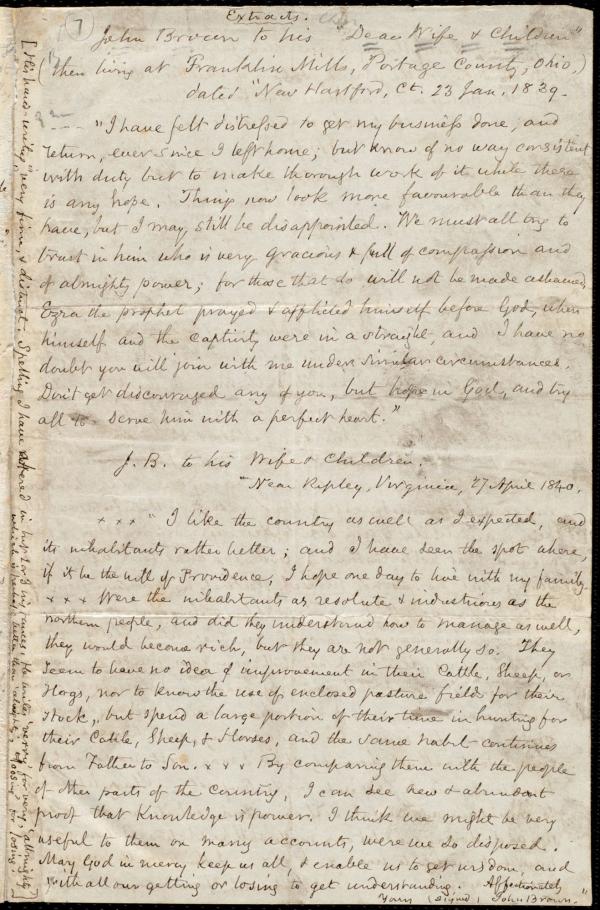 Extracts.
7
John Brown to his "Dear Wife & Children"
(then living at Franklin Mills, Portage County, Ohio,)
dated "New Hartford, Ct. 23 Jan. 1839.
---- "I have felt distressed to get my business done, and
return, ever since I left home; but know of no way consistent
with duty but to make thorough work of it while there
is any hope. Things now look more favourable than they
have, but I may still be disappointed. We must all try to
trust in him who is very gracious & full of compassion and
of almighty power; for those that do will not be made ashamed.
Ezra the prophet prayed & afflicted himself before God, when
himself and the captivity were in a straight, and I have no
doubt you will join with me under similar circumstances.
Don't get discouraged any of you, but hope in God, and try
all to serve him with a perfect heart."
J. B. to his Wife & Children.
"Near Ripley, Virginia, 27 April 1840.
x x x "I like the country as well as I expected, and
its inhabitants rather better; and I have seen the spot where,
if it be the will of Providence, I hope one day to live with my family.
x x x Were the inhabitants as resolute & industrious as the
northern people, and did they understand how to manage as well,
they would become rich, but they are not generally so. They
seem to have no idea of improvement in their Cattle, Sheep, or
Hogs, nor to know the use of enclosed pasture fields for their
stock, but spend a large portion of their time in hunting for
their Cattle, Sheep, & Horses, and the same habit continues
from Father to Son. x x x By comparing them with the people
of other parts of the Country, I can see new & abundant
proof that Knowledge is power. I think we might be very
useful to them on many accounts, were we so disposed.
May God in mercy keep us all, & enable us to get wisdom, and
with all our getting or losing to get understanding. Affectionately
Yours (signed) John Brown."
[His hand-writing very firm & distinct. Spelling I have altered in but few instances. He writes "verry" for very, "allmighty"
which is better than "almighty", "loosing" for losing.]